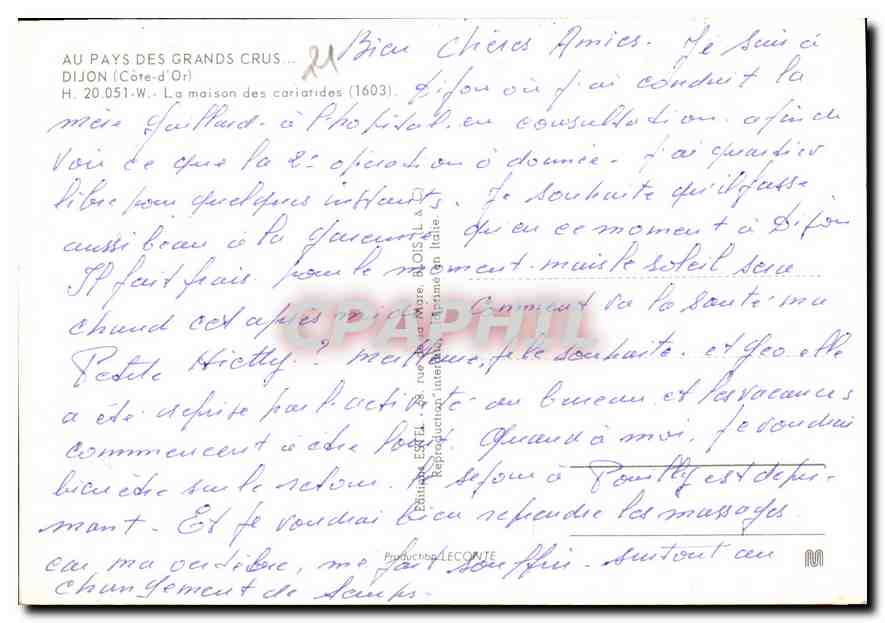 AU PAYS DES GRANDS CRUS...
DIJON (Côte-d'Or)
H. 20.051-W. - La maison des cariatides (1603).
21
Bien Chères Amies. Je suis à
Dijon où j'ai conduit la
mère Gaillard à l'hopital en consultation afin de
voir ce que la 2e opération à donnée. J'ai quartier
libre pour quelques instants. Je souhaite qu'il fasse
aussi beau à la qu'en ce moment à Dijon
Il fait frais pour le moment mais le soleil sera
chaud cet après midi. Comment va la santé ma
Petite ? meilleure, je le souhaite. et Geo elle
a été reprise par l'activité du bureau et les vacances
commencent à être loin. Quand à moi, Je voudrai
bien être sur le retour. Le séjour à Pouilly est dépri-
mant. Et Je voudrai bien reprendre les massages
car ma vertèbre, me fait souffrir. surtout au
changement de temps.
Editions ESTEL - 28, rue de la Mare, BLOIS (L. & C)
Reproduction interdite, Imprimé en Italie.
Production LECONTE
CPAPHIL